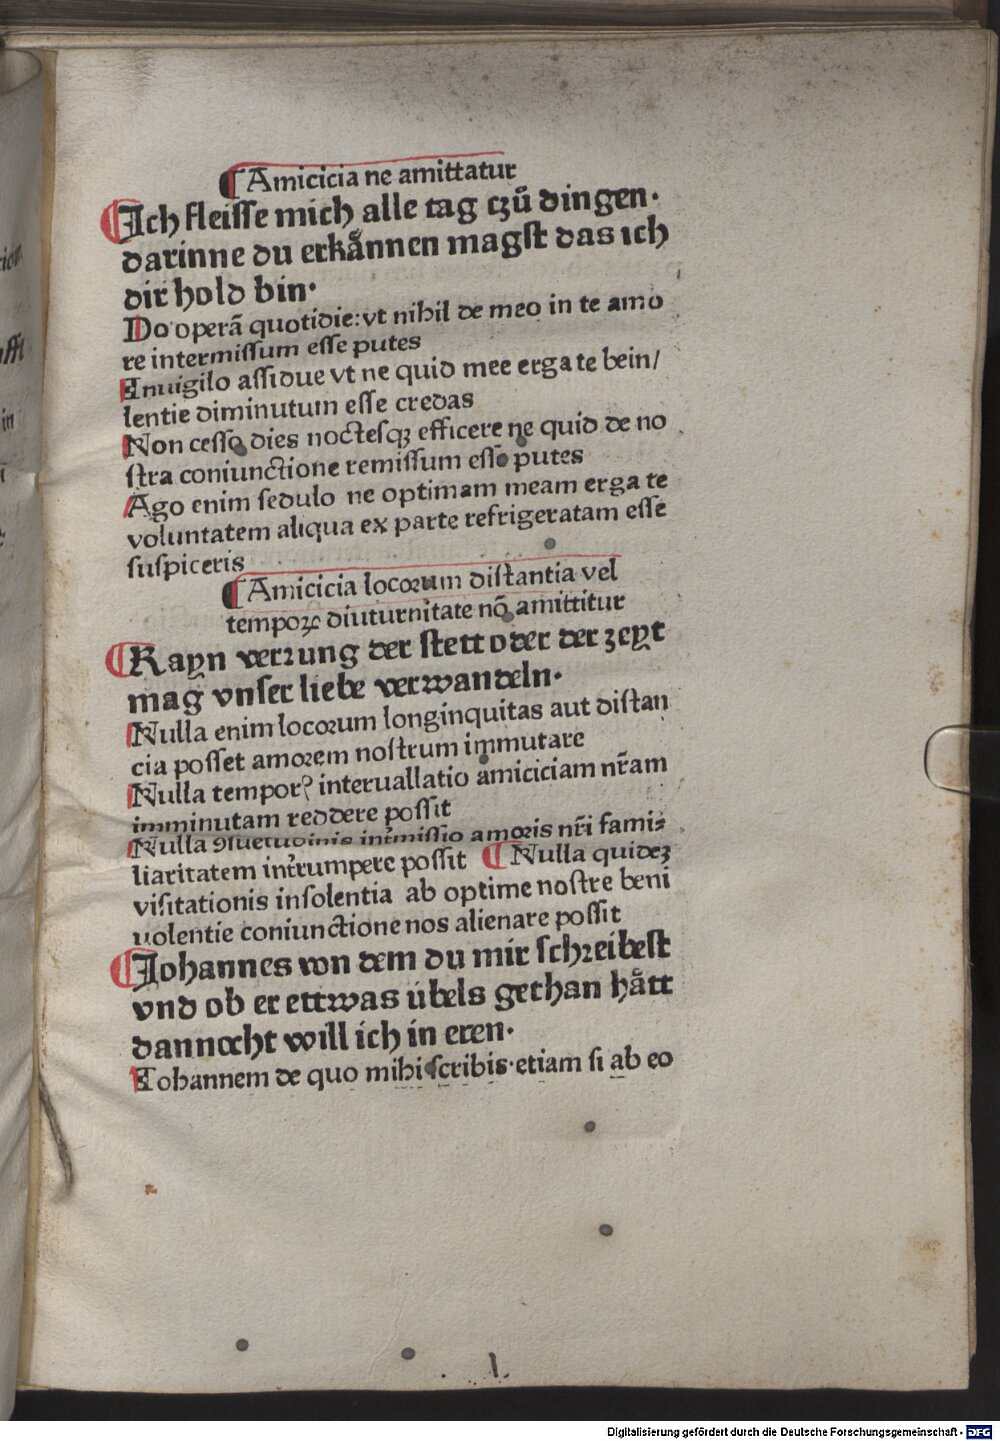 ¶Amicicia ne amittatur
¶Ich fleisse mich alle tag czů dingen·
darinne du erkånnen magst das ich
dir hold bin·
Do operā quotidie: vt nihil de meo in te amo
re intermissum esse putes
Inuigilo assidue vt ne quid mee erga te bein/
lentie diminutum esse credas
Non cesso dies noctesqꝫ efficere ne quid de no
stra coniunctione remissum esse putes
Ago enim sedulo ne optimam meam erga te
voluntatem aliqua ex parte refrigeratam esse
suspiceris
¶Amicicia locorum distantia vel
temporꝭ diuturnitate nō amittitur
¶Kayn verrung der stett oder der zeyt
mag vnser liebe verwandeln·
Nulla enim locorum longinquitas aut distan
cia posset amorem nostrum immutare
Nulla temporꝭ interuallatio amiciciam nr̄am
imminutam reddere possit
Nulla ꝯsuetudinis int̓missio amoris nr̄i fami⸗
liaritatem int̓rumpere possit ¶Nulla quideꝫ
visitationis insolentia ab optime nostre beni
uolentie coniunctione nos alienare possit
¶Johannes von dem du mir schreibest
vnd ob er ettwas übels gethan hått
dannocht will ich in eren·
Iohannem de quo mihi scribis· etiam si ab eo
l.
Digitalisierung gefördert durch die Deutsche Forschungsgemeinschaft - DFG